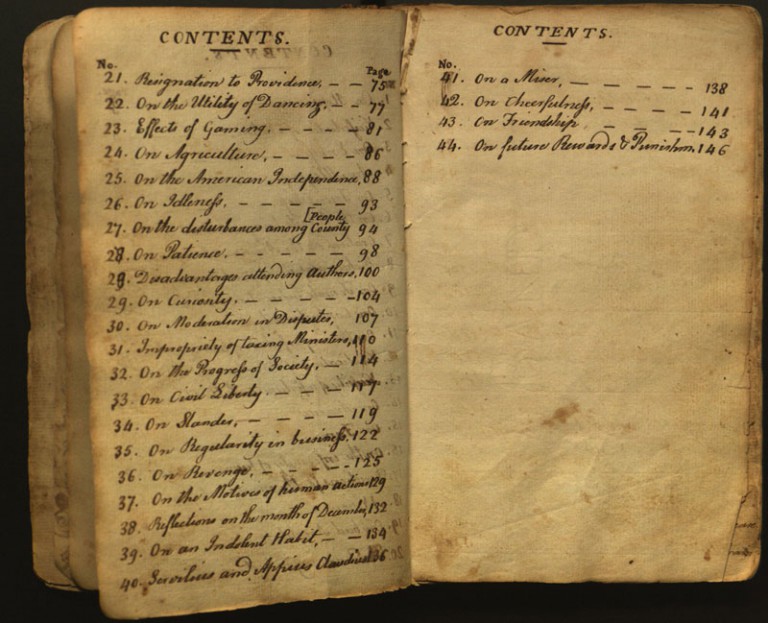 CONTENTS.
No. Page
21. Resignation to Providence, — — 75
22. On the Utility of Dancing, — — 77
23. Effects of Gaming, — — — — 81
24. On Agriculture, — — — — 86
25. On the American Independence, 88
26. On Idleness, — — — — — 93
[People
27. On the disturbances among County 94
28. On Patience. — — — — — 98
28. Disadvantages attending Authors, 100
29. On Curiosity. — — — — — 104
30. On Moderation in Disputes, 107
31. Impropriety of taxing Ministers, 110
32. On the Progress of Society. — 114
33. On Civil Liberty. — — — 117
34. On Slander, — — — — 119
35. On Regularity in business, 122
36. On Revenge, — — — — 125
37. On the Motives of human actions 129
38. Reflections on the month of Decembr, 132
39. On an Indolent Habit, — — 134
40. Servilius and Appius Claudius 136
CONTENTS.
No.
41. On a Miser, — — — — — — 138
42. On Cheerfulness, — — — — 141
43. On Friendship — — — — 143
44. On future Rewards & Punishm. 146